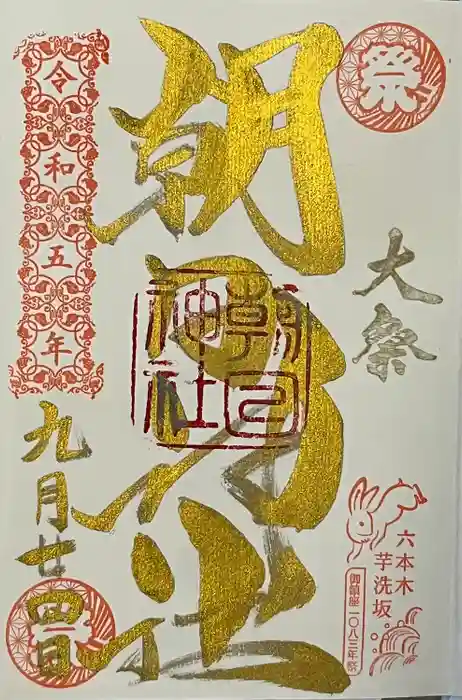 祭
大祭
六本木
芋洗坂
御鎮座一〇八三年祭
朝日神社
朝日
神社
令和五年
九月廿四日